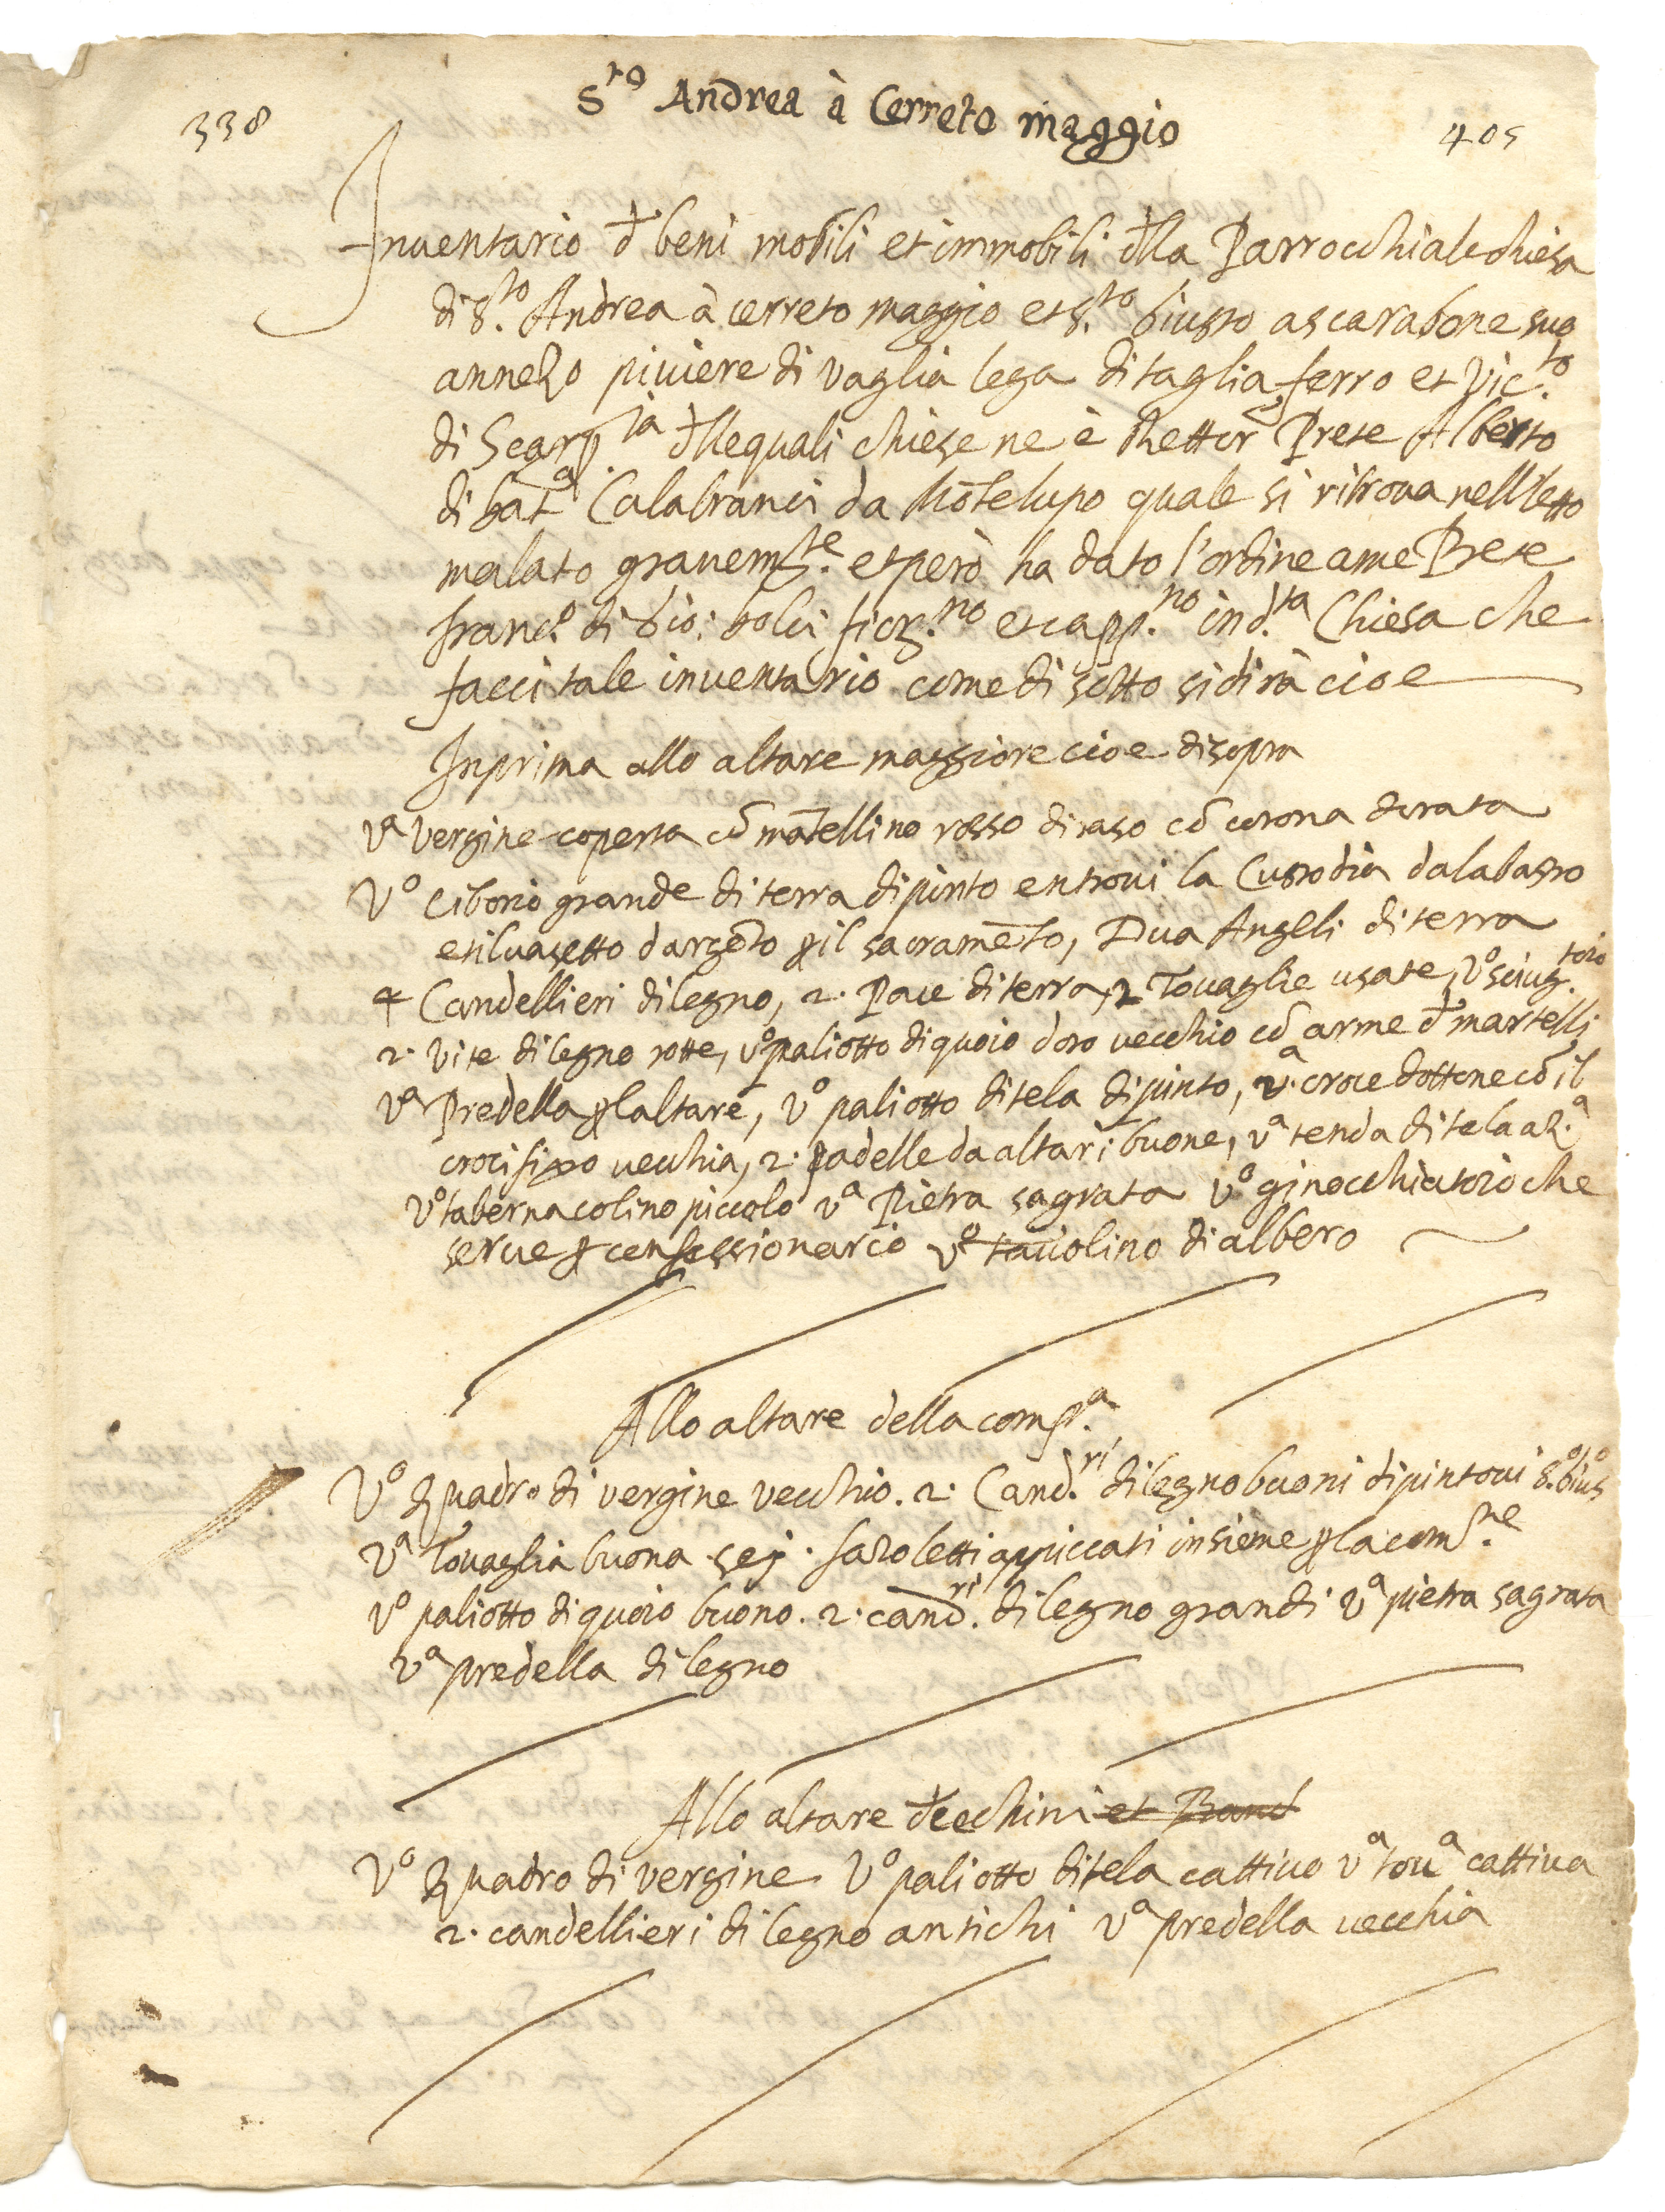 338
S.to Andrea à Cerreto maggio
405
Inuentario d̄ beni mobili et immobili d̄lla Parrocchiale chiesa
di S.to Andrea à cerreto maggio et S.to Giusto a scarabone suo
annesso piuiere di Vaglia lega di tagliaferro et Vic.to
di Scarp.ia d̄lle quali chiese ne è Rettor Prete Alberto
di bat.a Calabranci da Mōtelupo quale si ritroua nell letto
malato grauem.te et però ha dato l'ordine a me Prete
franc.o di Gio: bolci fior.no et capp.no in d.ta Chiesa che
facci tale inuentario come di sotto si dirà cioe
Inprima allo altare maggiore cioe di sopra
Va vergine coperta cō mātellino rosso di raso cō corona dorata
Vo ciborio grande di terra dipinto entroui la Custodia dalabastro
et il uasetto dargēto p il sacramēto, Dua Angeli di terra
4 Candellieri di legno, 2. Pace di terra, 2 Touaglie usate, Vo sciug.toio
2. Vite di legno rotte, Vo paliotto di quoio doro uecchio cō arme d̄ martelli
Va Predella p laltare, Vo paliotto di tela dipinto, va croce dottone cō il
crocifixo uecchia, 2. padelle da altari buone, va tenda di tela
Vo tabernacolino piccolo va Pietra sagrata Vo ginocchiatoio che
serue p confessionario Vo tauolino di albero
Allo altare della comp.a
Vo Quadro di vergine vecchio. 2. Cand.ri di legno buoni dipintoui S.o Gius.o
Va Touaglia buona sej. fazoletti appiccati insieme p la com.ne
Vo paliotto di quoio buono. 2. cand.ri di legno grandi Va pietra sagrata
Va predella di legno
Allo altare d̄ cechini et Band
Vo Quadro di vergine Vo paliotto di tela cattiuo va tou.a cattiua
2. candellieri di legno antichi Va predella uecchia